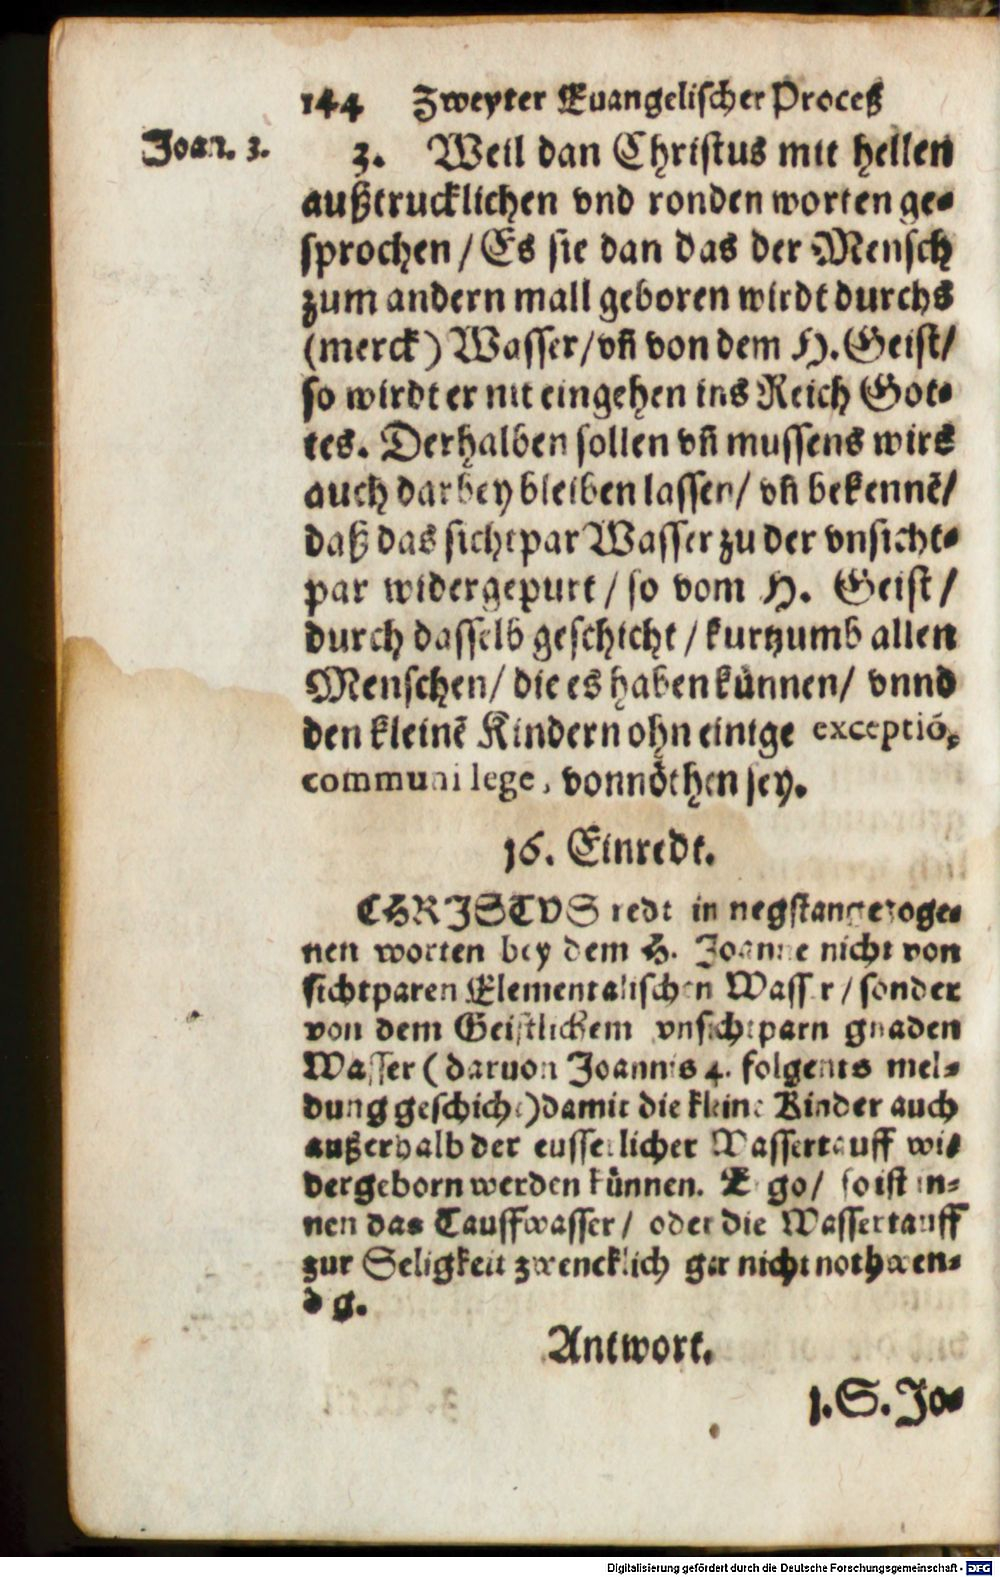 144 Zweyter Euangelischer Proceß
Joan. 3.
3. Weil dan Christus mit hellen
außtrucklichen vnd ronden worten ge-
sprochen / Es sie dan das der Mensch
zum andern mall geboren wirdt durchs
(merck) Wasser/vñ von dem H. Geist/
so wirdt er nit eingehen ins Reich Got-
tes. Derhalben sollen vñ mussens wirs
auch darbey bleiben lassen/ vñ bekennẽ/
daß das sichtpar Wasser zu der vnsicht-
par widergepurt / so vom H. Geist /
durch dasselb geschicht / kurtzumb allen
Menschen/ die es haben künnen/ vnnd
den kleinẽ Kindern ohn einige exceptiõ,
communi lege, vonnöthen sey.
16. Einredt.
CHRISTVS redt in negstangezoge-
nen worten bey dem H. Joanne nicht von
sichtparen Elementalischen Wasser / sonder
von dem Geistlichem vnsichtparn gnaden
Wasser ( daruon Joannis 4. folgents mel-
dung geschicht) damit die kleine Kinder auch
außerhalb der eusserlicher Wassertauff wi-
dergeborn werden künnen. Ergo/ so ist in-
nen das Tauffwasser / oder die Wassertauff
zur Seligkeit zwencklich gar nicht nothwen-
dig.
Antwort.
1. S. Jo-
Digitalisierung gefördert durch die Deutsche Forschungsgemeinschaft - DFG